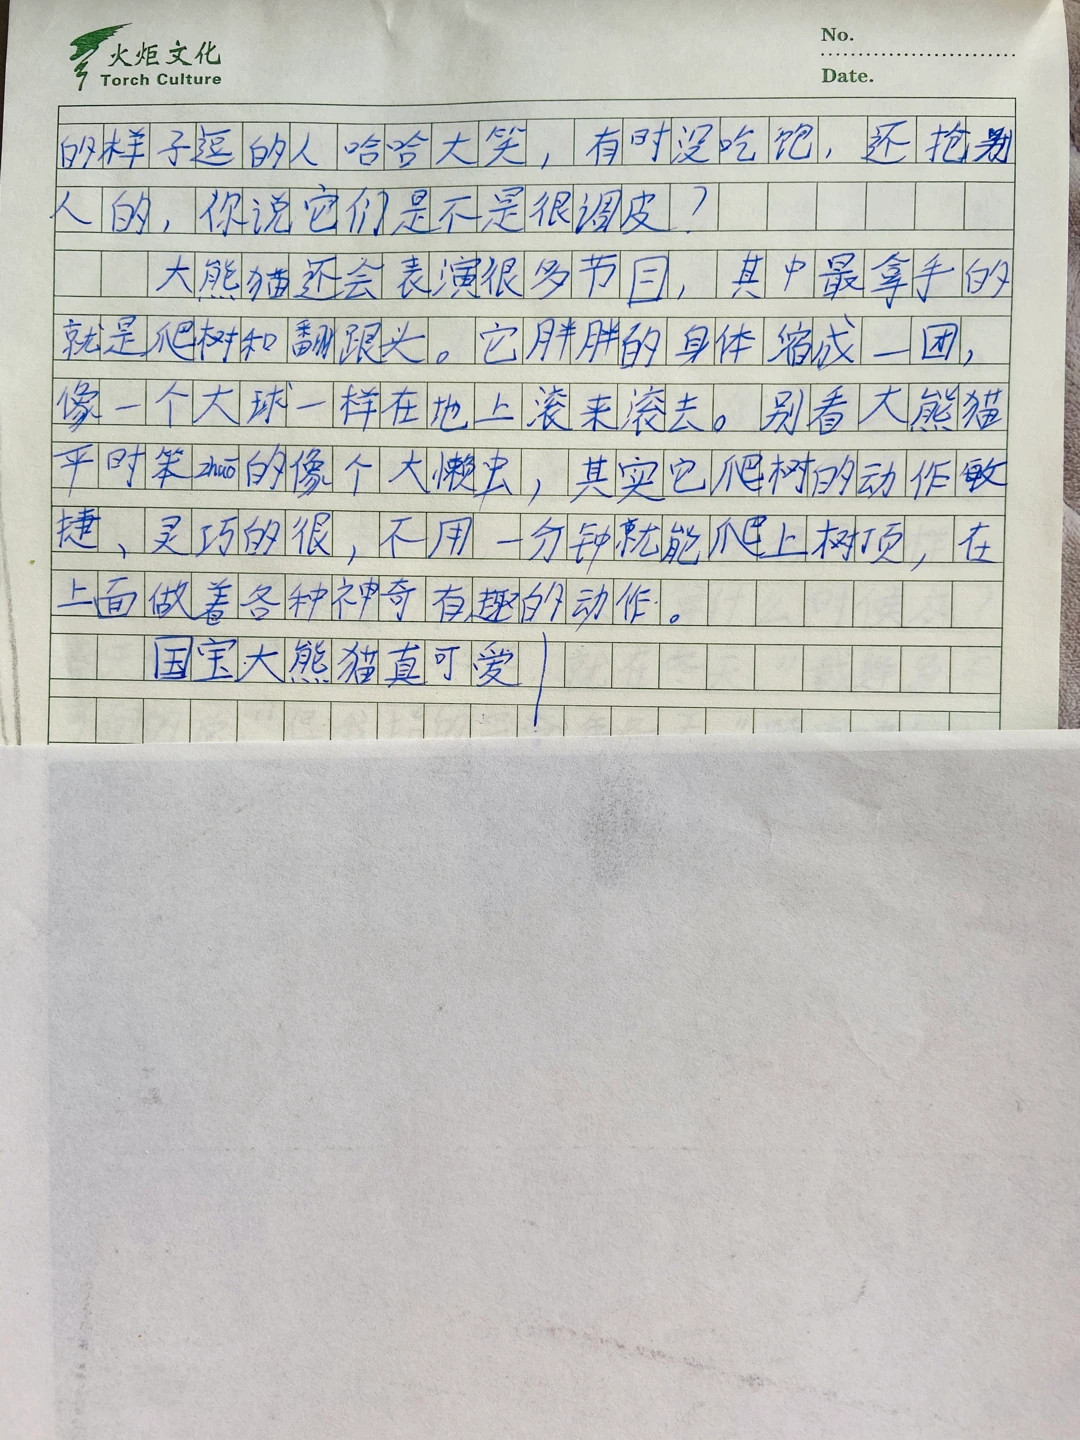 火炬文化
Torch Culture
No.
Date.
的样子逗的人哈哈大笑，有时没吃饱，还抢别
人的，你说它们是不是很调皮？
大熊猫还会表演很多节目，其中最拿手的
就是爬树和翻跟头。它胖胖的身体缩成一团，
像一个大球一样在地上滚来滚去。别看大熊猫
平时笨zhuō的像个大懒虫，其实它爬树的动作敏
捷、灵巧的很，不用一分钟就能爬上树顶，在
上面做着各种神奇有趣的动作。
国宝大熊猫真可爱！